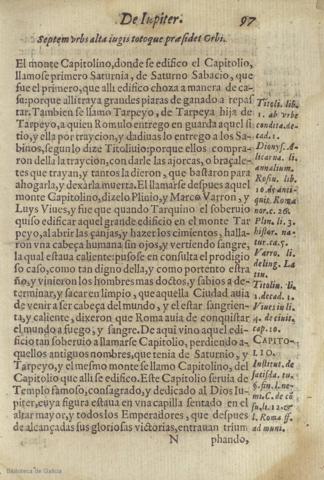 De Iupiter. 97
Septem vrbs alta iugis totoque præsidet Orbi.
El monte Capitolino, donde se edifico el Capitolio,
llamose primero Saturnia, de Saturno Sabacio, que
fue el primero, que alli edifico choza a manera de ca-
su: porque alli traya grandes piaras de ganado a repas
tar. Tambien se llamo Tarpeyo, de Tarpeya hija de
Tarpeyo, a quien Romulo entrego en guarda aquel si
tio, y ella por trayzion, y dadiuas lo entrego a los Sa-
binos, segun lo dize Titoliuio: porque ellos compra-
ron della la trayzion, con darle las ajorcas, o braçale-
tes que trayan, y tantos la dieron, que bastaron para
ahogarla, y dexarla muerta. El llamarse despues aquel
monte Capitolino, dizelo Plinio, y Marco Varron, y
Luys Viues, y fue que quando Tarquino el soberuio
quiso edificar aquel grande edificio en el monte Tar
peyo, al abrir las çanjas, y hazer los cimientos, halla-
ron vna cabeça humana sin ojos, y vertiendo sangre,
la qual estaua caliente: pusose en consulta el prodigio
so caso, como tan digno della, y como portento estra
ño, y vinieron los hombres mas doctos, y sabios a de-
terminar, y sacaron limpio, que aquella Ciudad auia
de venir a ser cabeça del mundo, y el estar sangrien-
ta, y caliente, dixeron que Roma auia de conquistar
el mundo a fuego, y sangre. De aqui vino aquel edi-
ficio tan soberuio a llamarse Capitolio, perdiendo a-
quellos antiguos nombres, que tenia de Saturnio, y
Tarpeyo, y el mesmo monte se llamo Capitolino, del
Capitolio que alli se edifico. Este Capitolio seruia de
Templo famoso, consagrado, y dedicado al Dios Iu-
piter, cuya figura estaua en vna capilla sentado en el
altar mayor, y todos los Emperadores, que despues
de alcançadas sus gloriosas victorias, entrauan trium
N phando,
Titoli. lib.
1. ab vrbe
condita. de-
cad. 1.
Dionys. A-
licarna. li.
annalium.
Rosin. lib.
10. de anti-
quit. Roma
nar. c. 26.
Plin. li. 3.
histor. na-
tur. ca. 5.
Varro. li.
de ling. La
tin.
Titolin. li.
1. decad. 1.
Viues in li.
4. de ciuit.
cap. 10.
CAPITO-
LIO.
Institut. de
satisda. tu.
§. fin. l. ne-
mi. C. de cō
l. Roma ff.
ad muni.
Biblioteca de Galicia